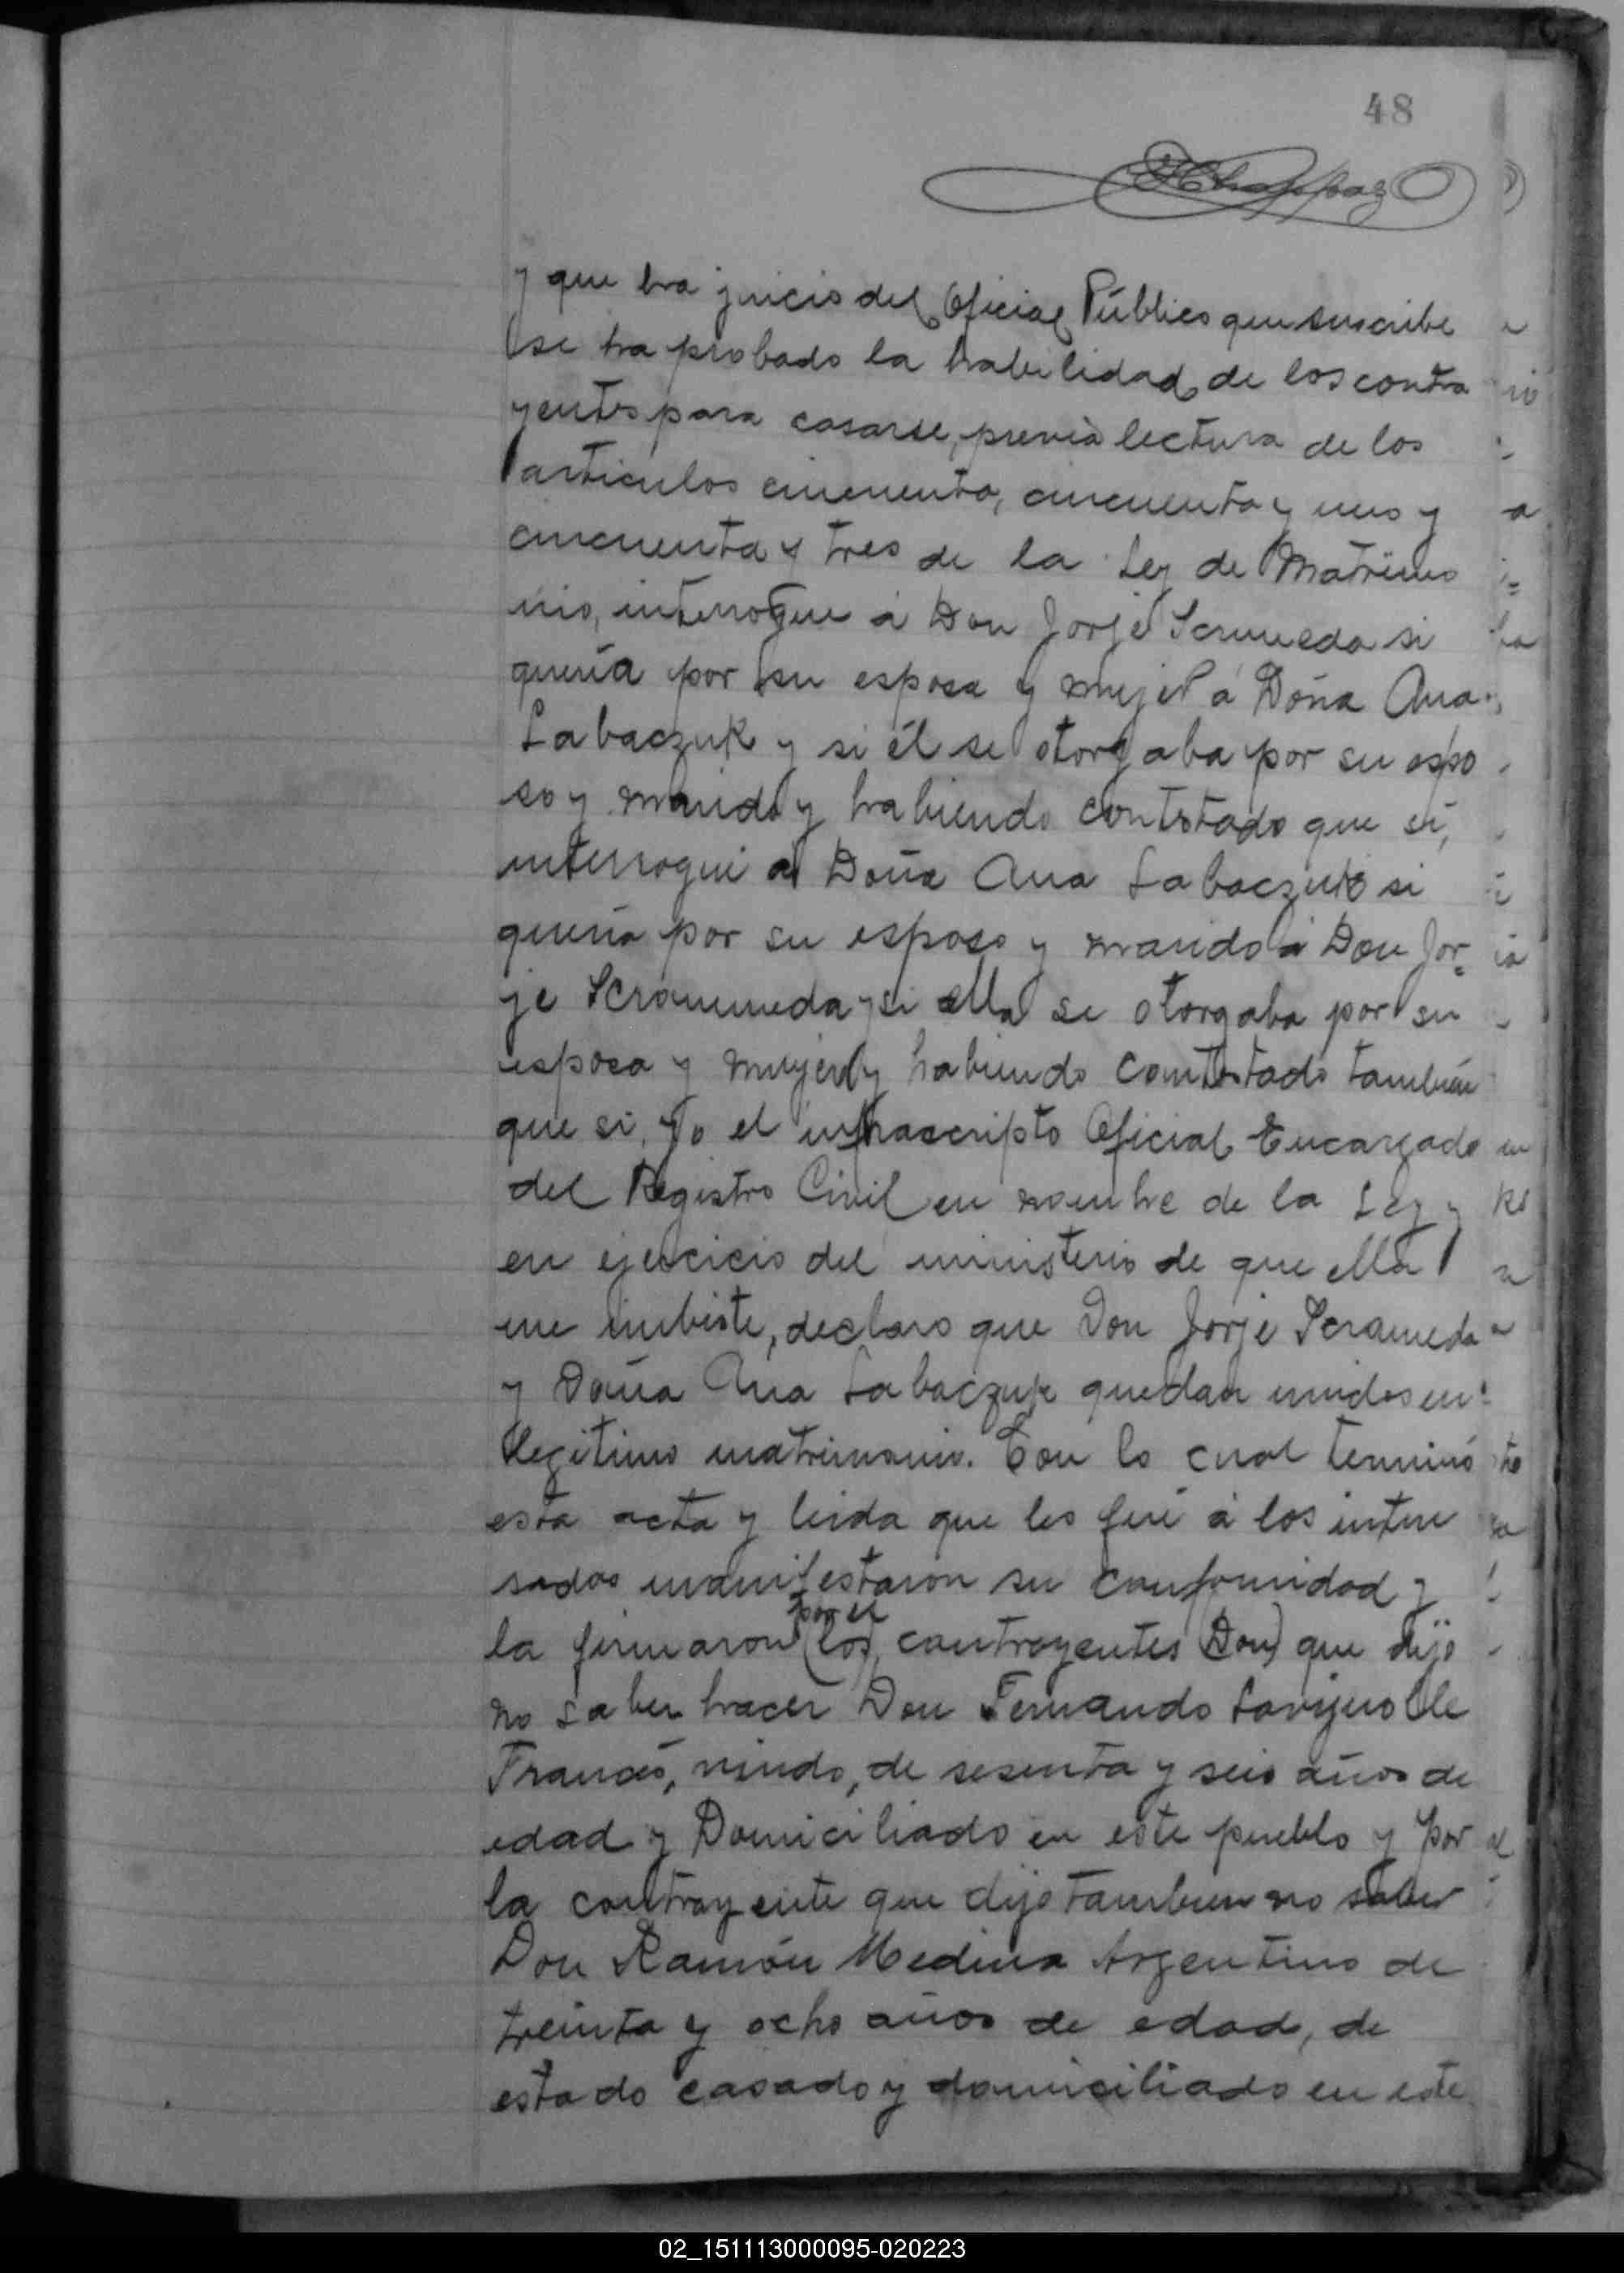 48
EChappaz
y que ha juicio del Oficial Público que suscribe
se ha probado la habilidad de los contra
yentes para casarse, previa lectura de los
articulos cincuenta, cincuenta y uno y
cincuenta y tres de la Ley de Matrimo
nio, interrogue á Don Jorje Scrameda si
quería por su esposa y mujer á Doña Ana
Labaczuk y si él se otorgaba por su espo
so y marido y habiendo contestado que sí,
interrogué a Doña Ana Labaczuk si
quería por su esposo y marido á Don Jor=
je Scrameda y si ella se otorgaba por su
esposa y mujer y habiendo contestado también
que si, Yo el infrascripto Oficial Encargado
del Registro Civil en nombre de la Ley y
en ejercicio del ministerio de que ella
me imbiste, declaro que Don Jorje Scrameda
y Doña Ana Labaczuk quedan unidos en
legitimo matrimonio. Con lo cual terminó
esta acta y leida que les fué á los intere
sados manifestaron su conformidad y
por el
la firmaron (los) contrayentes (Don) que dijo
no saber hacer Don Fernando
Francés, viudo, de sesenta y seis años de
edad y Domiciliado en este pueblo y por
la contrayente que dijo tambien no saber
Don Ramón Medina Argentino de
treinta y ocho años de edad, de
estado casado y domiciliado en este
02_151113000095-020223